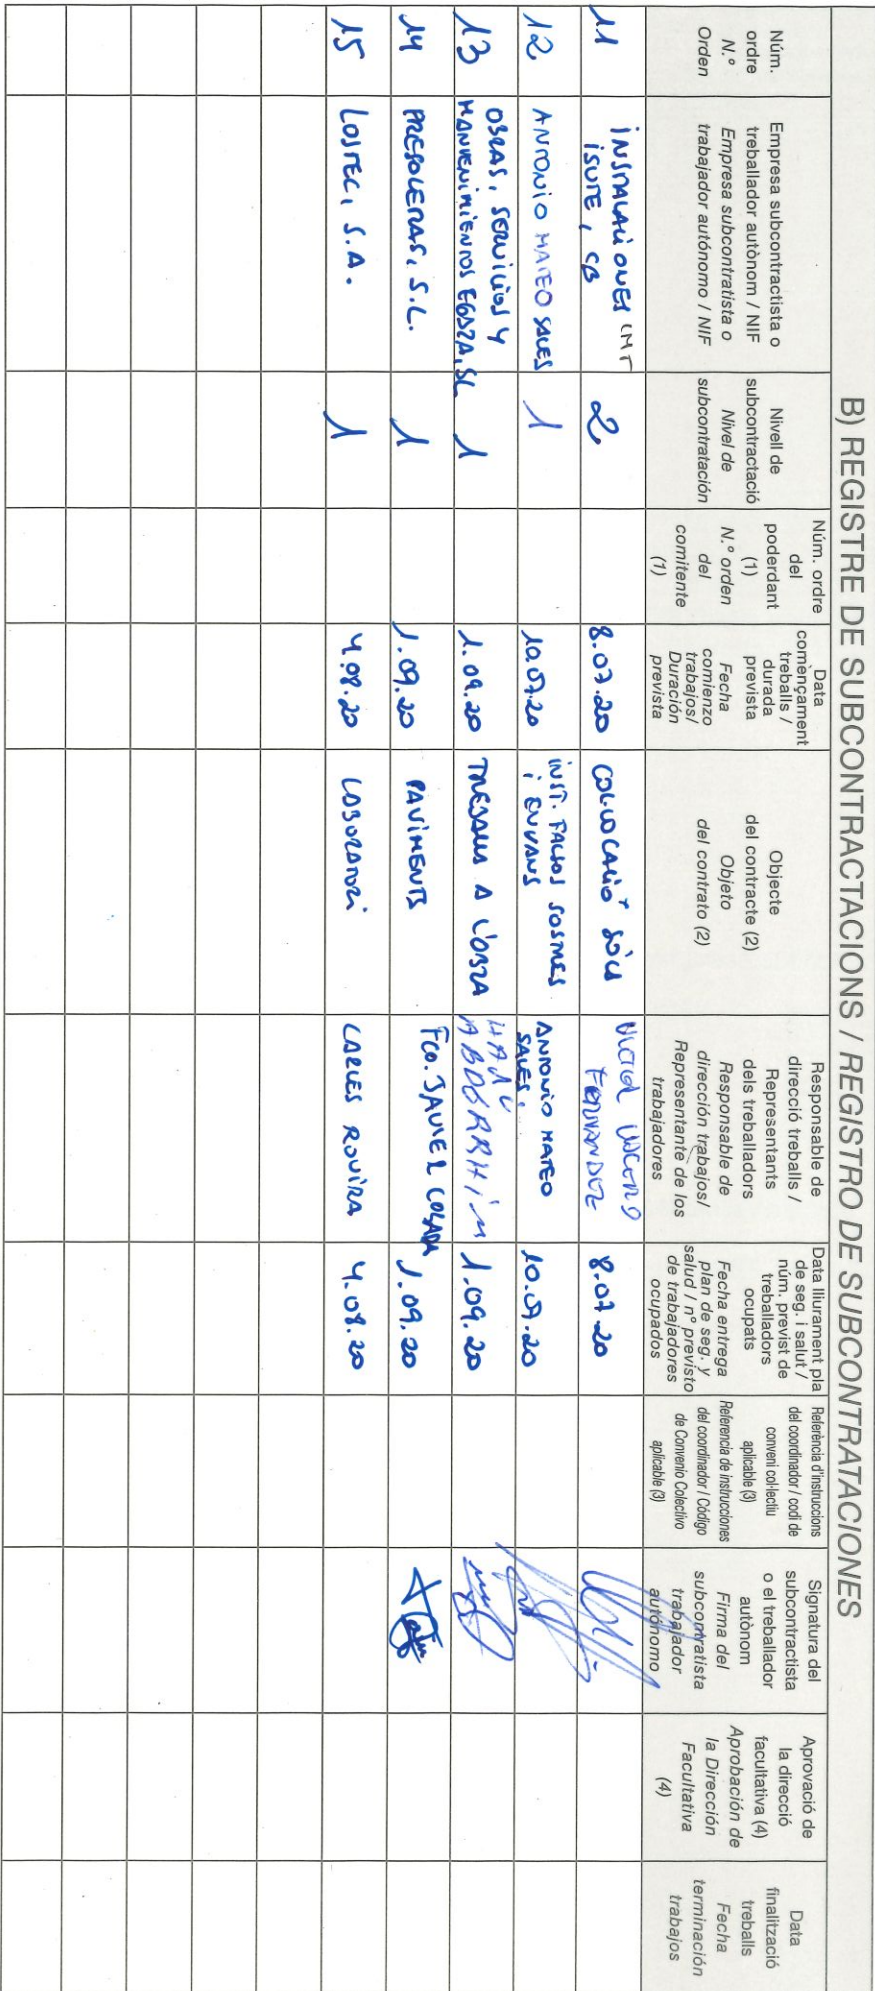 B) REGISTRE DE SUBCONTRACTACIONS / REGISTRO DE SUBCONTRATACIONES
Núm.
ordre
N.º
Orden
Empresa subcontractista o
treballador autònom / NIF
Empresa subcontratista o
trabajador autónomo / NIF
Nivell de
subcontractació
Nivel de
subcontratación
Núm. ordre
del
poderdant
(1)
N.º orden
del
comitente
(1)
Data
començament
treballs /
durada
prevista
Fecha
comienzo
trabajos/
Duración
prevista
Objecte
del contracte (2)
Objeto
del contrato (2)
Responsable de
direcció treballs /
Representants
dels treballadors
Responsable de
dirección trabajos/
Representante de los
trabajadores
Data lliurament pla
de seg. i salut /
núm. previst de
treballadors
ocupats
Fecha entrega
plan de seg. y
salud / nº previsto
de trabajadores
ocupados
Referència d'instruccions
del coordinador / codi de
conveni col·lectiu
aplicable (3)
Referencia de instrucciones
del coordinador / Código
de Convenio Colectivo
aplicable (3)
Signatura del
subcontractista
o el treballador
autònom
Firma del
subcontratista
trabajador
autónomo
Aprovació de
la direcció
facultativa (4)
Aprobación de
la Dirección
Facultativa
(4)
Data
finalització
treballs
Fecha
terminación
trabajos
11
INSTALACIONES CMT
ISUTE, CB
2
8.07.20
COL·LOCACIÓ SÒLS
FERNANDEZ
8.07.20
12
ANTONIO MATEO SALES
1
10.07.20
INST. FALSOS SOSTRES
i ENVANS
ANTONIO MATEO
SALES.
10.07.20
13
OBRAS, SERVICIOS Y
MANTENIMIENTOS EGARA, SL
1
1.09.20
TREBALLS A L'OBRA
ABDERRHIM
1.09.20
14
PRESOLERAS, S.L.
1
1.09.20
PAVIMENTS
FCO. JAVIER LOSADA
1.09.20
15
LOSTEC, S.A.
1
4.08.20
LABORATORI
CARLES ROVIRA
4.08.20